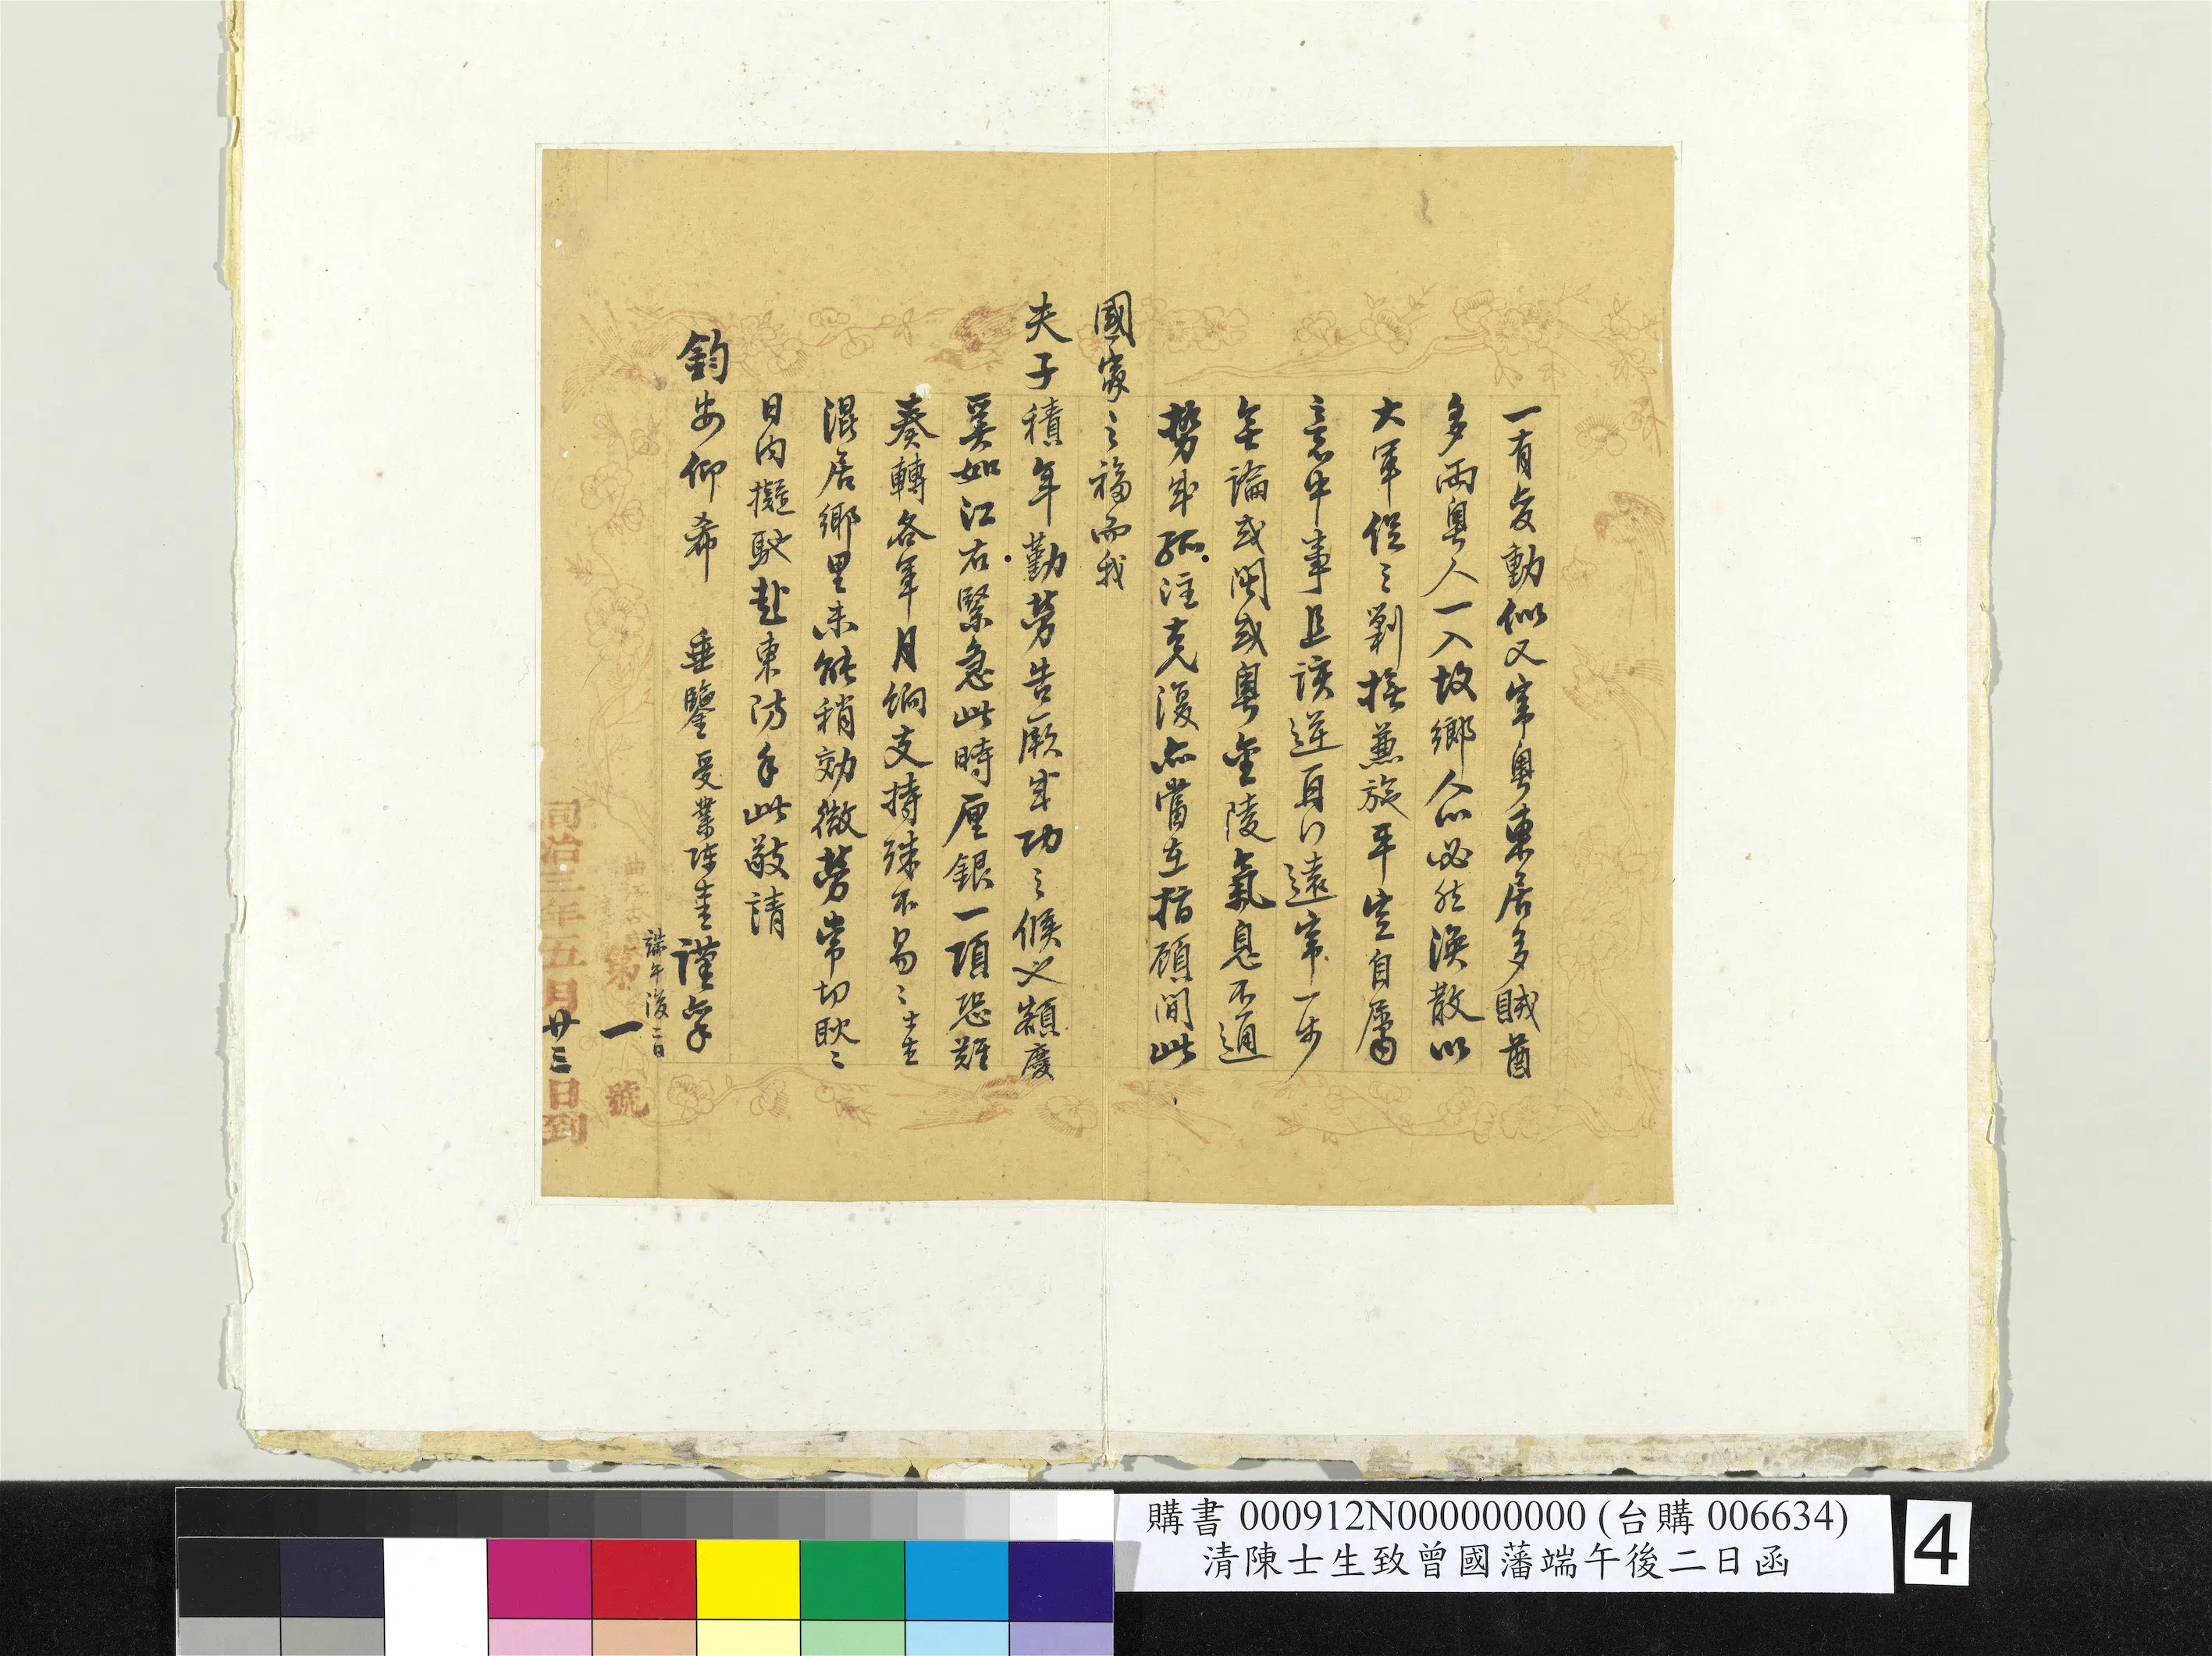 一有變動似又竄粵東居多賊酋
多兩粵人一入故鄉人心必然渙散以
大軍從之剿撫兼施平定自屬
意中事且該逆日行遠竄一步
無論或閩或粵金陵氣息不通
勢成孤注克復亦當在指顧間此
國家之福而我
夫子積年勤勞告厥成功之候也額慶
奚如江右緊急此時厘銀一項恐難
奏轉各軍月餉支持殊不易易士生
混居鄉里未能稍効微勞常切耿耿
日內擬馳赴東防手此敬請
鈞安仰希 垂鑒受業陳士生謹稟
端午後二日
第一號
同治三年五月廿三日到
購書 000912N000000000 (台購 006634)
清陳士生致曾國藩端午後二日函
4